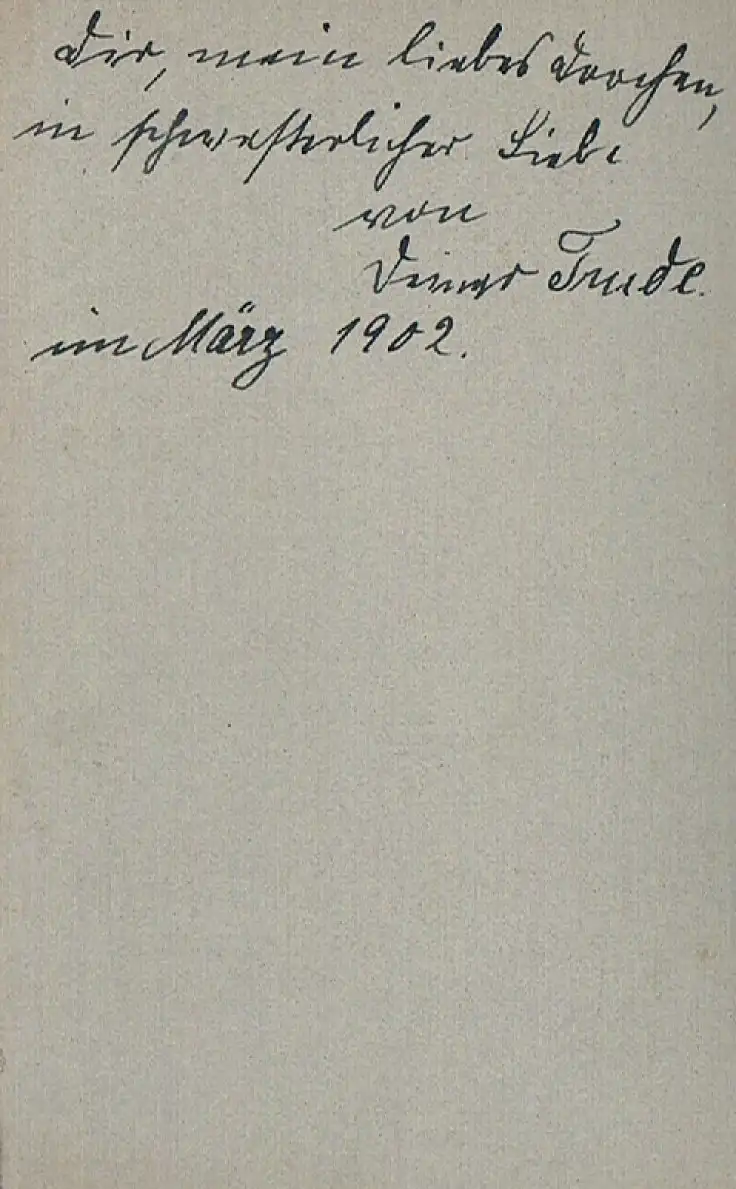 Dir, mein liebes Dorchen,
in schwesterlicher Liebe
von
Deiner Trude.
im März 1902.